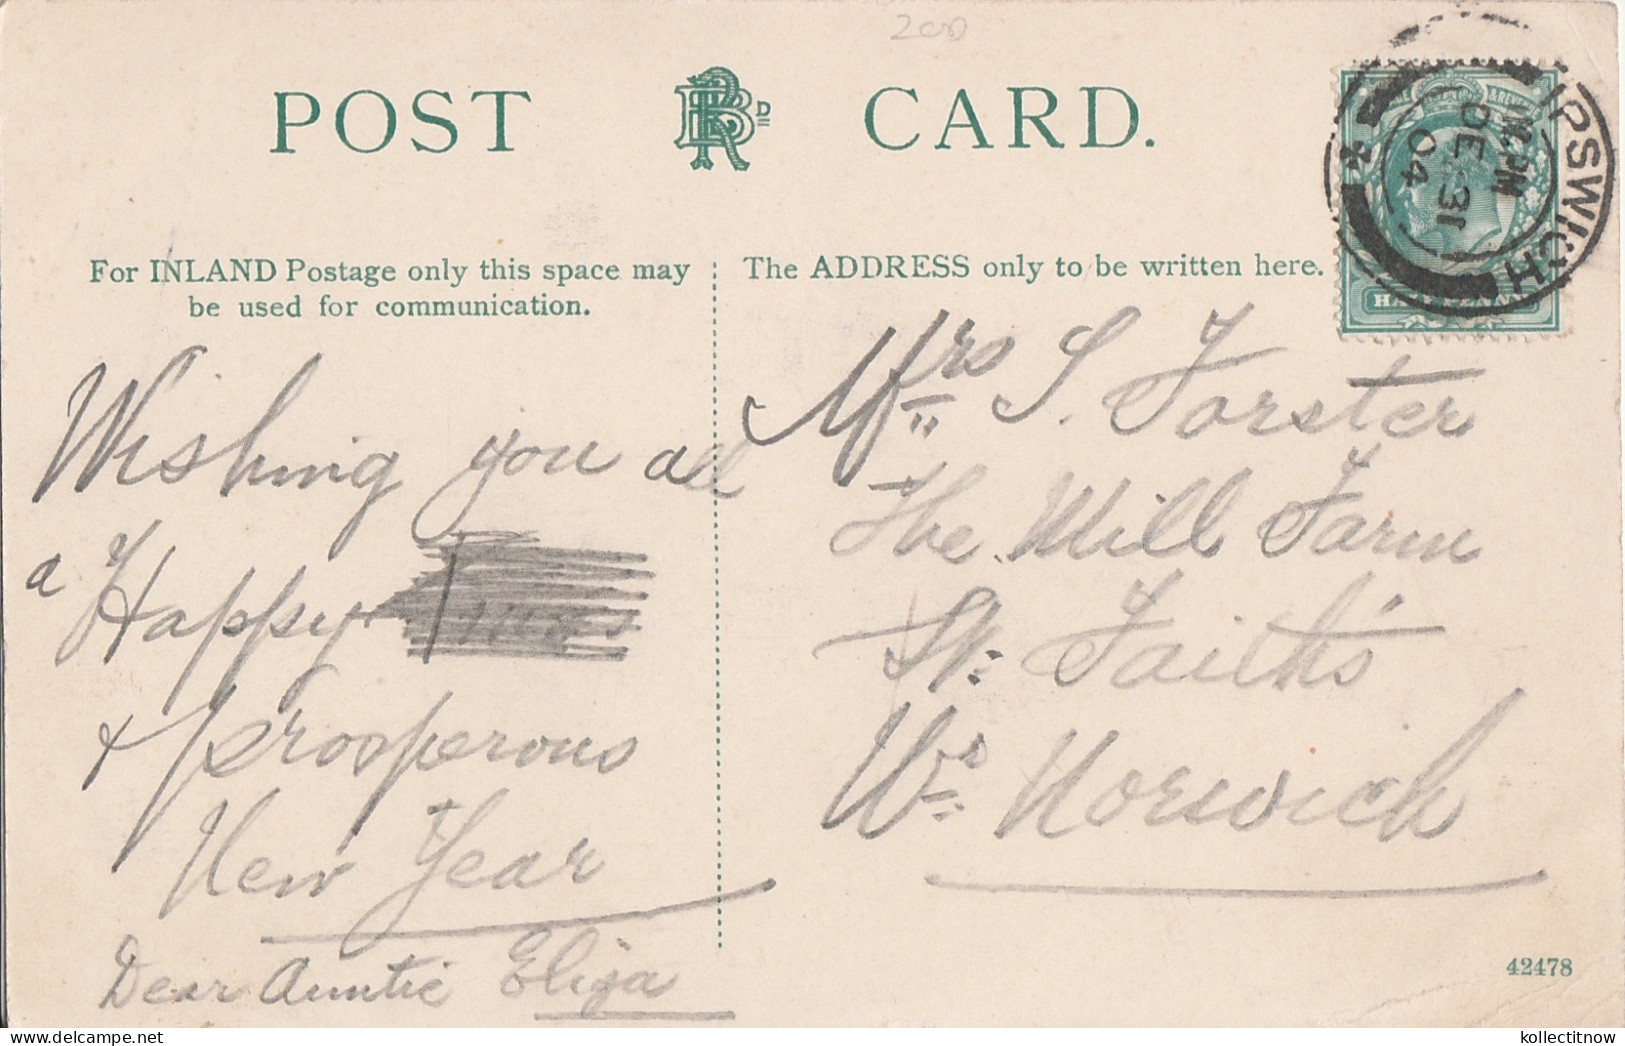 200
POST CARD.
For INLAND Postage only this space may
be used for communication.
The ADDRESS only to be written here.
IPSWICH
DE 31
04
HALFPENNY
Wishing you all
a Happy
& prosperous
New Year
Dear Auntie Eliza
Mrs S. Forster
The Mill Farm
St. Faith's
Nr. Norwich
42478
kollectitnow